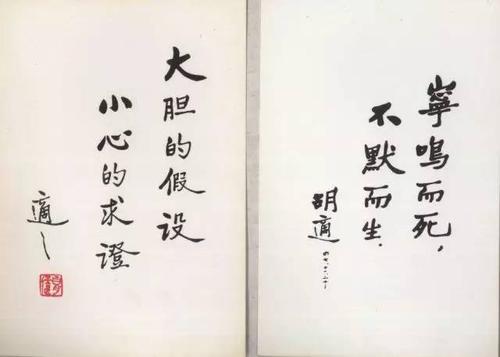 大胆的假设
小心的求證
適之
寧鳴而死，
不默而生．
胡適